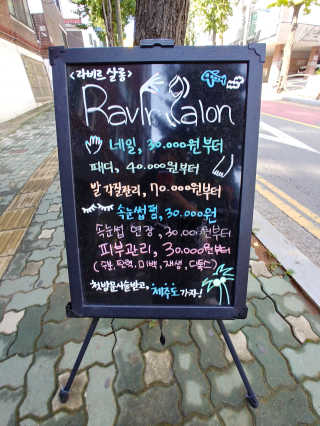 <라비르 살롱>
Ravir Salon
네일, 30.000원부터
패디, 40.000원부터
발 각질관리, 70.000원부터
속눈썹펌, 30.000원
속눈썹 연장, 30.000원부터
피부관리, 30.000원부터
(수분, 탄력, 미백, 재생, 디톡스)
첫방문시술받고, 제주도 가자!